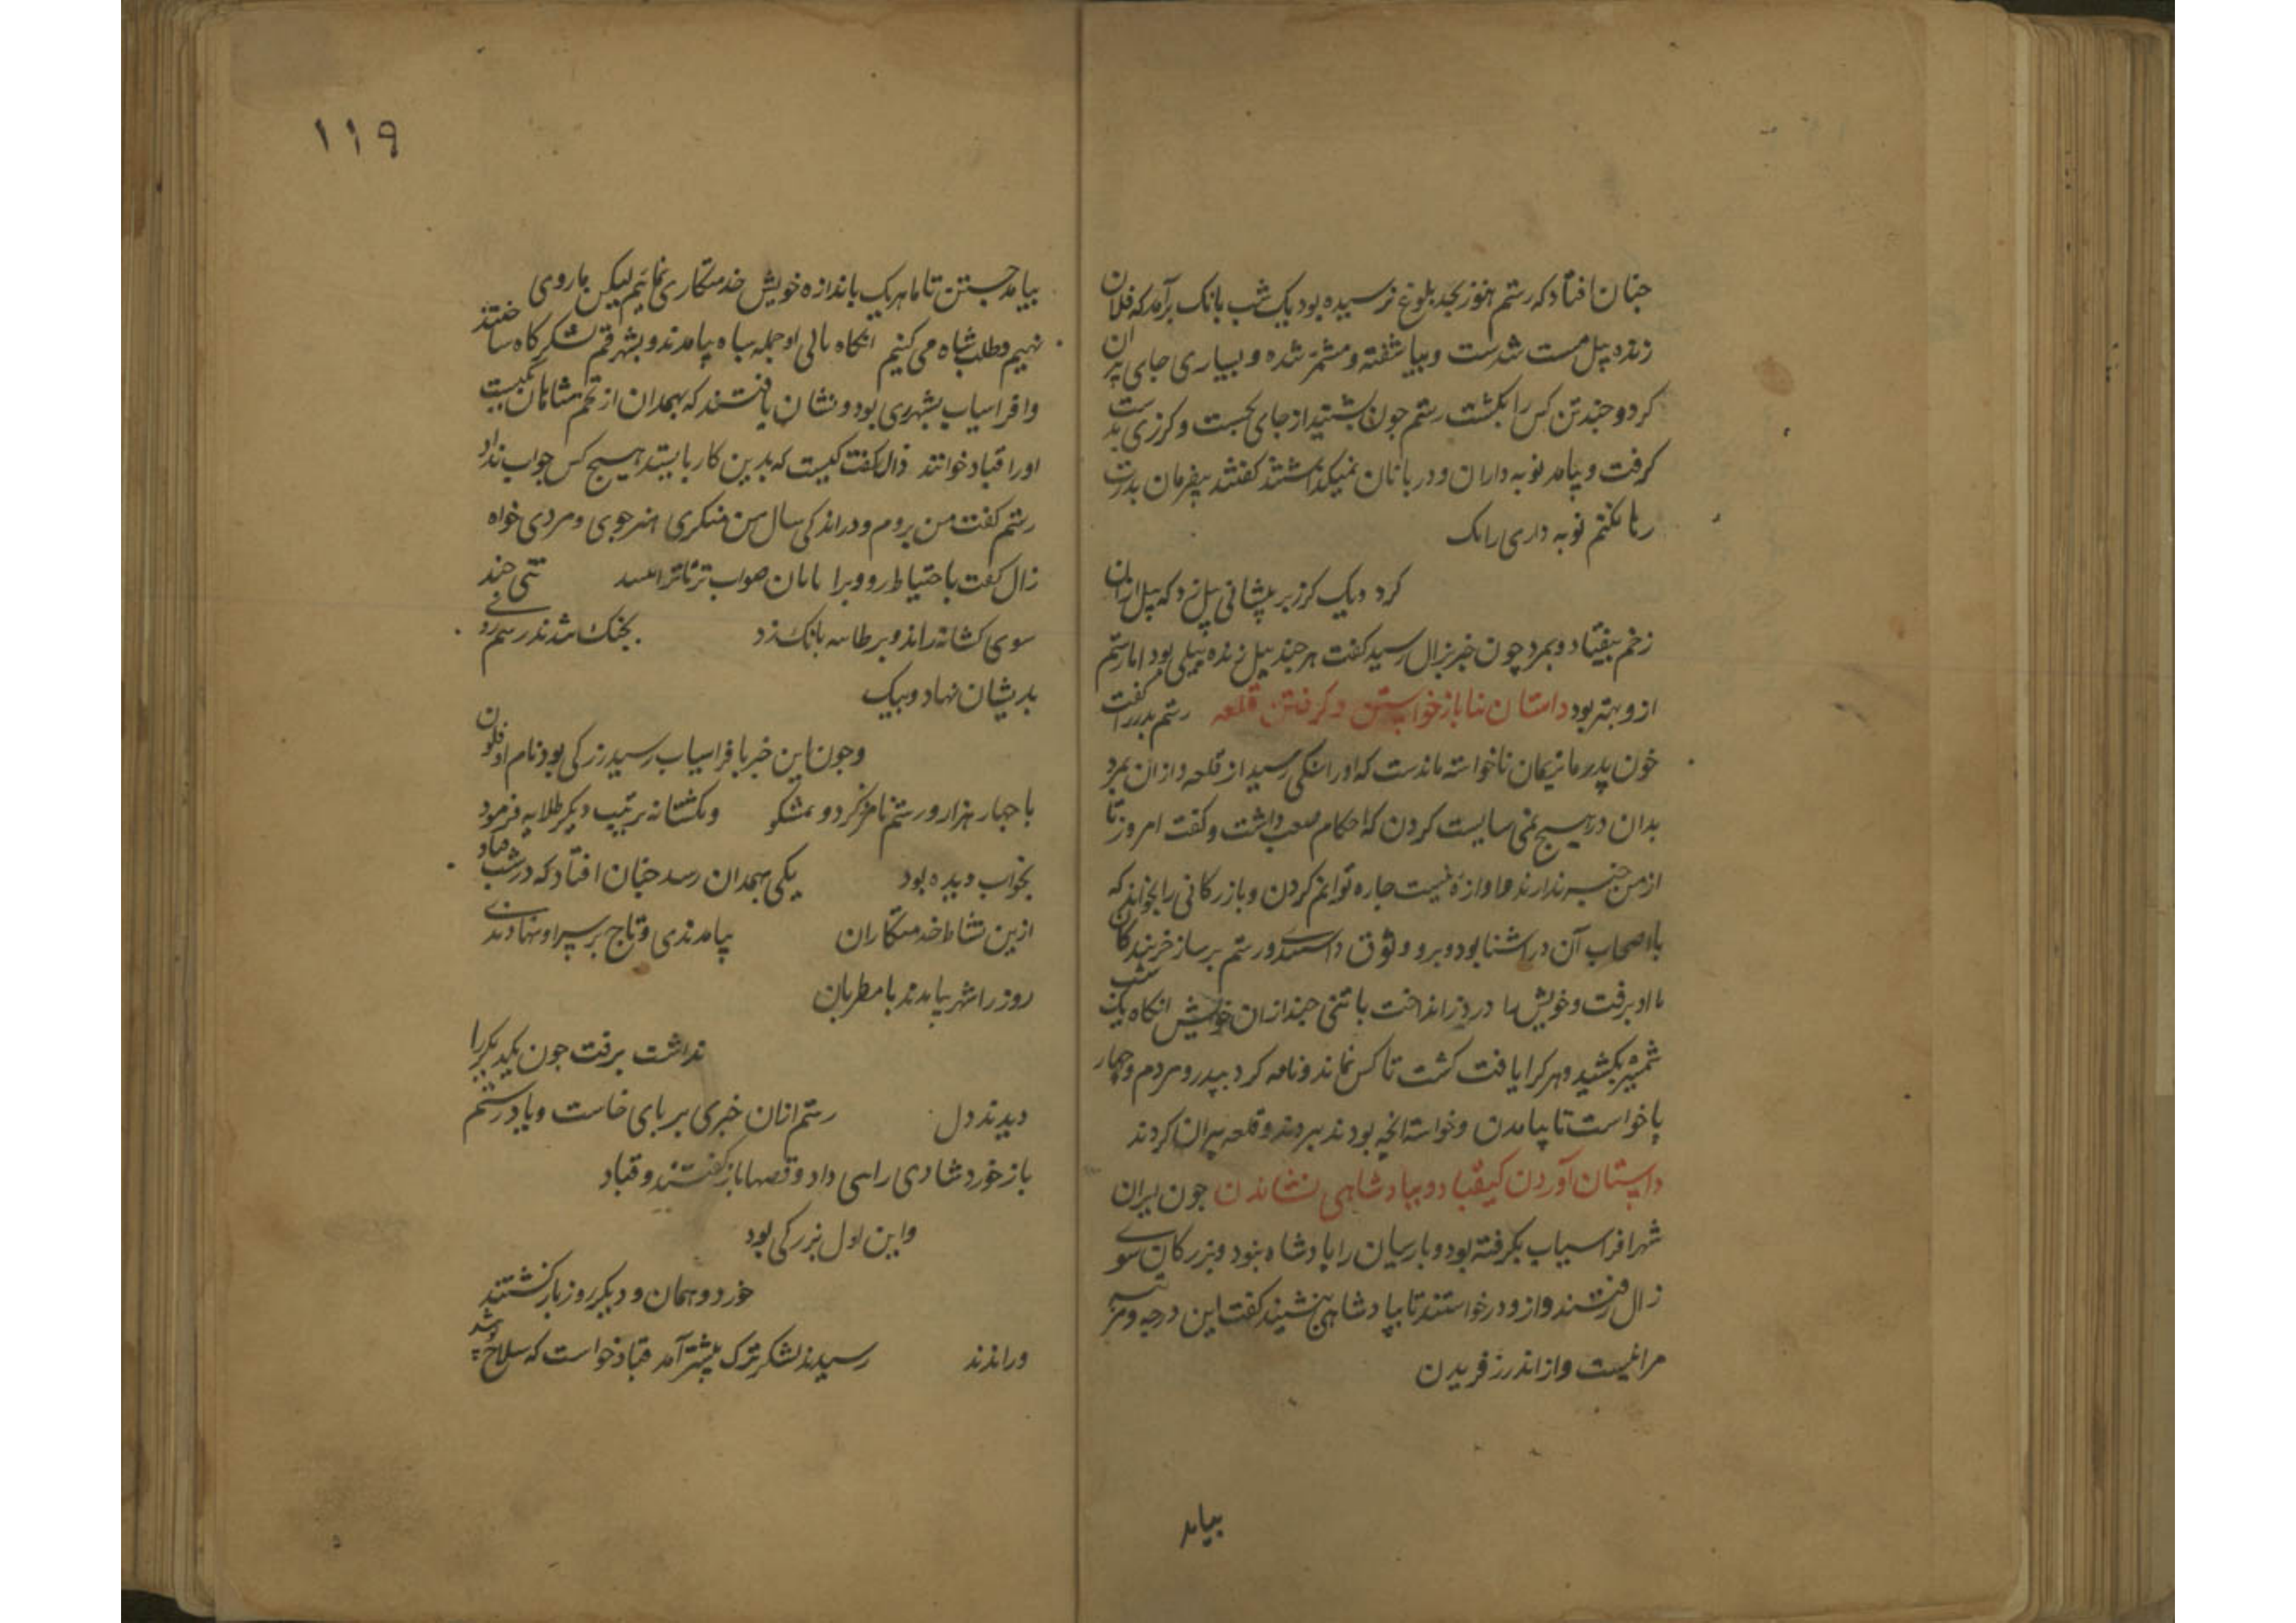 جنان افتاد که رستم هنوز بحد بلوغ نرسیده بود یک شب بانک برآمد که فلان
زنده پیل مست شدست و بیاشفته و مشمر شده و بسیاری جای پران
کرد و جند تن کس را بکشت رستم جون بشنید از جای بجست و کرزی بدست
کرفت و بیامد نوبه داران و دربانان نمیکذاشتند کفتند بیفرمان بدرت
رها نکنتم نوبه داری را یک
کرد و یک کرز بر پیشانی پیل زد که پیل ازان
زخم بیفتاد و بمرد چون خبر بزال رسید کفت هر جند پیل زنده پیلی بود اما رستم
ازو بهتر بود داستان نیا باز خواستن و کرفتن قلعه رستم پدر را کفت
خون پدر ما نریمان ناخواسته ماندست که اورا سنکی رسید از قلعه و ازان بمرد
بدان در هیچ نمی شایست کردن که احکام صعب داشت و کفت امروز تا
از من خبر ندارند و اوازهٔ نیست جاره توانم کردن و بازرکانی را بخواند که
با اصحاب آن در اشنا بود و برو وثوق داشتندی و رستم بر ساز خربندکان
با او برفت و خویش را در دز انداخت با تنی جند ازان خویش انکاه یک شب
شمشیر بکشید و هر کرا یافت کشت تا کس نماند و نامه کرد بپدر و مردم و چهار
پا خواست تا بیامدن و خواسته انچه بود ببردند و قلعه بیران کردند
داستان آوردن کیقباد و بپادشاهی نشاندن جون ایران
شهر افراسیاب بکرفته بود و بارسیان را پادشاه نبود و بزرکان سوی
زال رفتند و ازو درخواستند تا بپادشاهی بنشیند کفت این درجه و مرتبه
مرا نیست و از اندرز فریدن
بیامد
۱۱۹
بیامد جستن تا ما هر یک باندازه خویش خدمتکاری نمائیم لیکن ما روی
نهیم و طلب شاه می کنیم انکاه او جمله سباه بیامدند و بشهر قم لشکرکاه ساختند
و افراسیاب بشهر ری بود و نشان یافتند که بهمدان از تخم شاهان کیست
اورا قباد خوانند زال کفت کیست که بدین کار بایستد هیچ کس جواب نداد
رستم کفت من بروم و در اندکی سال من منکری هنر جوی و مردی خواه
زال کفت با حتیاط رو و برا تنی جند
سوی کشانه راند و بر طلایه بانک زد بجنک شدند رستم روی
بدیشان نهاد و بیک
وجون این خبر بافراسیاب رسید بزرکی بود نام او قلون
با جهار هزار و رستم نامزد کرد و دیکر طلایه فرمود
یکی بهمدان رسد جنان افتاد که در شب قباد بخواب دیده بود
ازین نشاط خدمتکاران بیامدندی و تاج بر سر او نهادندی
روز را شهر بیامدند با مطربان
نداشت برفت جون یکدیکر را
دیدند دل رستم ازان خبری بر بای خاست و یاد رستم
باز خورد شادی را می داد و قصها باز کفتند و قباد
و این اول بزرکی بود
خورد و همان و دیکر روز باز کشتند
و راندند رسیدند لشکر ترک بیشتر آمد قباد خواست که سلاح پوشد